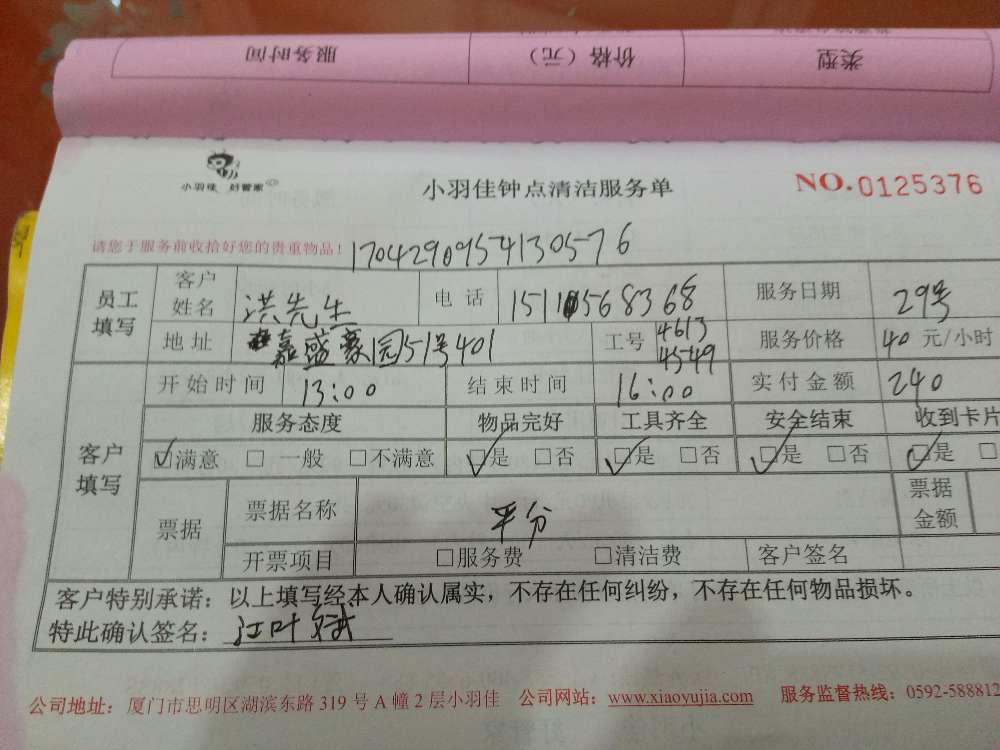 服务时间 价格（元） 类型
小羽佳 好管家
小羽佳钟点清洁服务单
NO.0125376
请您于服务前收拾好您的贵重物品！ 1704290954130576
员工填写 客户姓名 洪先生 电话 服务日期 29号
地址 嘉盛豪园51号401 工号 4613 4549 服务价格 40 元/小时
客户填写 开始时间 13:00 结束时间 16:00 实付金额 240
服务态度 物品完好 工具齐全 安全结束 收到卡片
☑满意 □一般 □不满意 ☑是 □否 ☑是 □否 ☑是 □否 ☑是 □
票据 票据名称 平分 票据金额
开票项目 □服务费 □清洁费 客户签名
客户特别承诺：以上填写经本人确认属实，不存在任何纠纷，不存在任何物品损坏。
特此确认签名：
公司地址：厦门市思明区湖滨东路 319 号 A 幢 2 层小羽佳 公司网站：www.xiaoyujia.com 服务监督热线：0592-588812